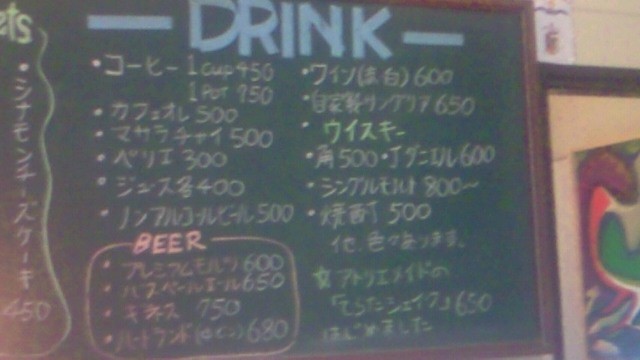 ets
・シナモンチーズケーキ
450
DRINK
・コーヒー 1cup 450
1Pot 950
・カフェオレ 500
・マサラチャイ 500
・ペリエ 300
・ジュース各400
・ノンアルコールビール 500
BEER
・プレミアムモルツ 600
・バスペールエール 650
・ギネス 750
・ハートランド(中ビン) 680
・ワイン(赤 白) 600
・自家製サングリア 650
・ウイスキー
・角 500・Jダニエル 600
・シングルモルト 800〜
・焼酎 500
他、色々あります。
アトリエメイドの
650
はじめました